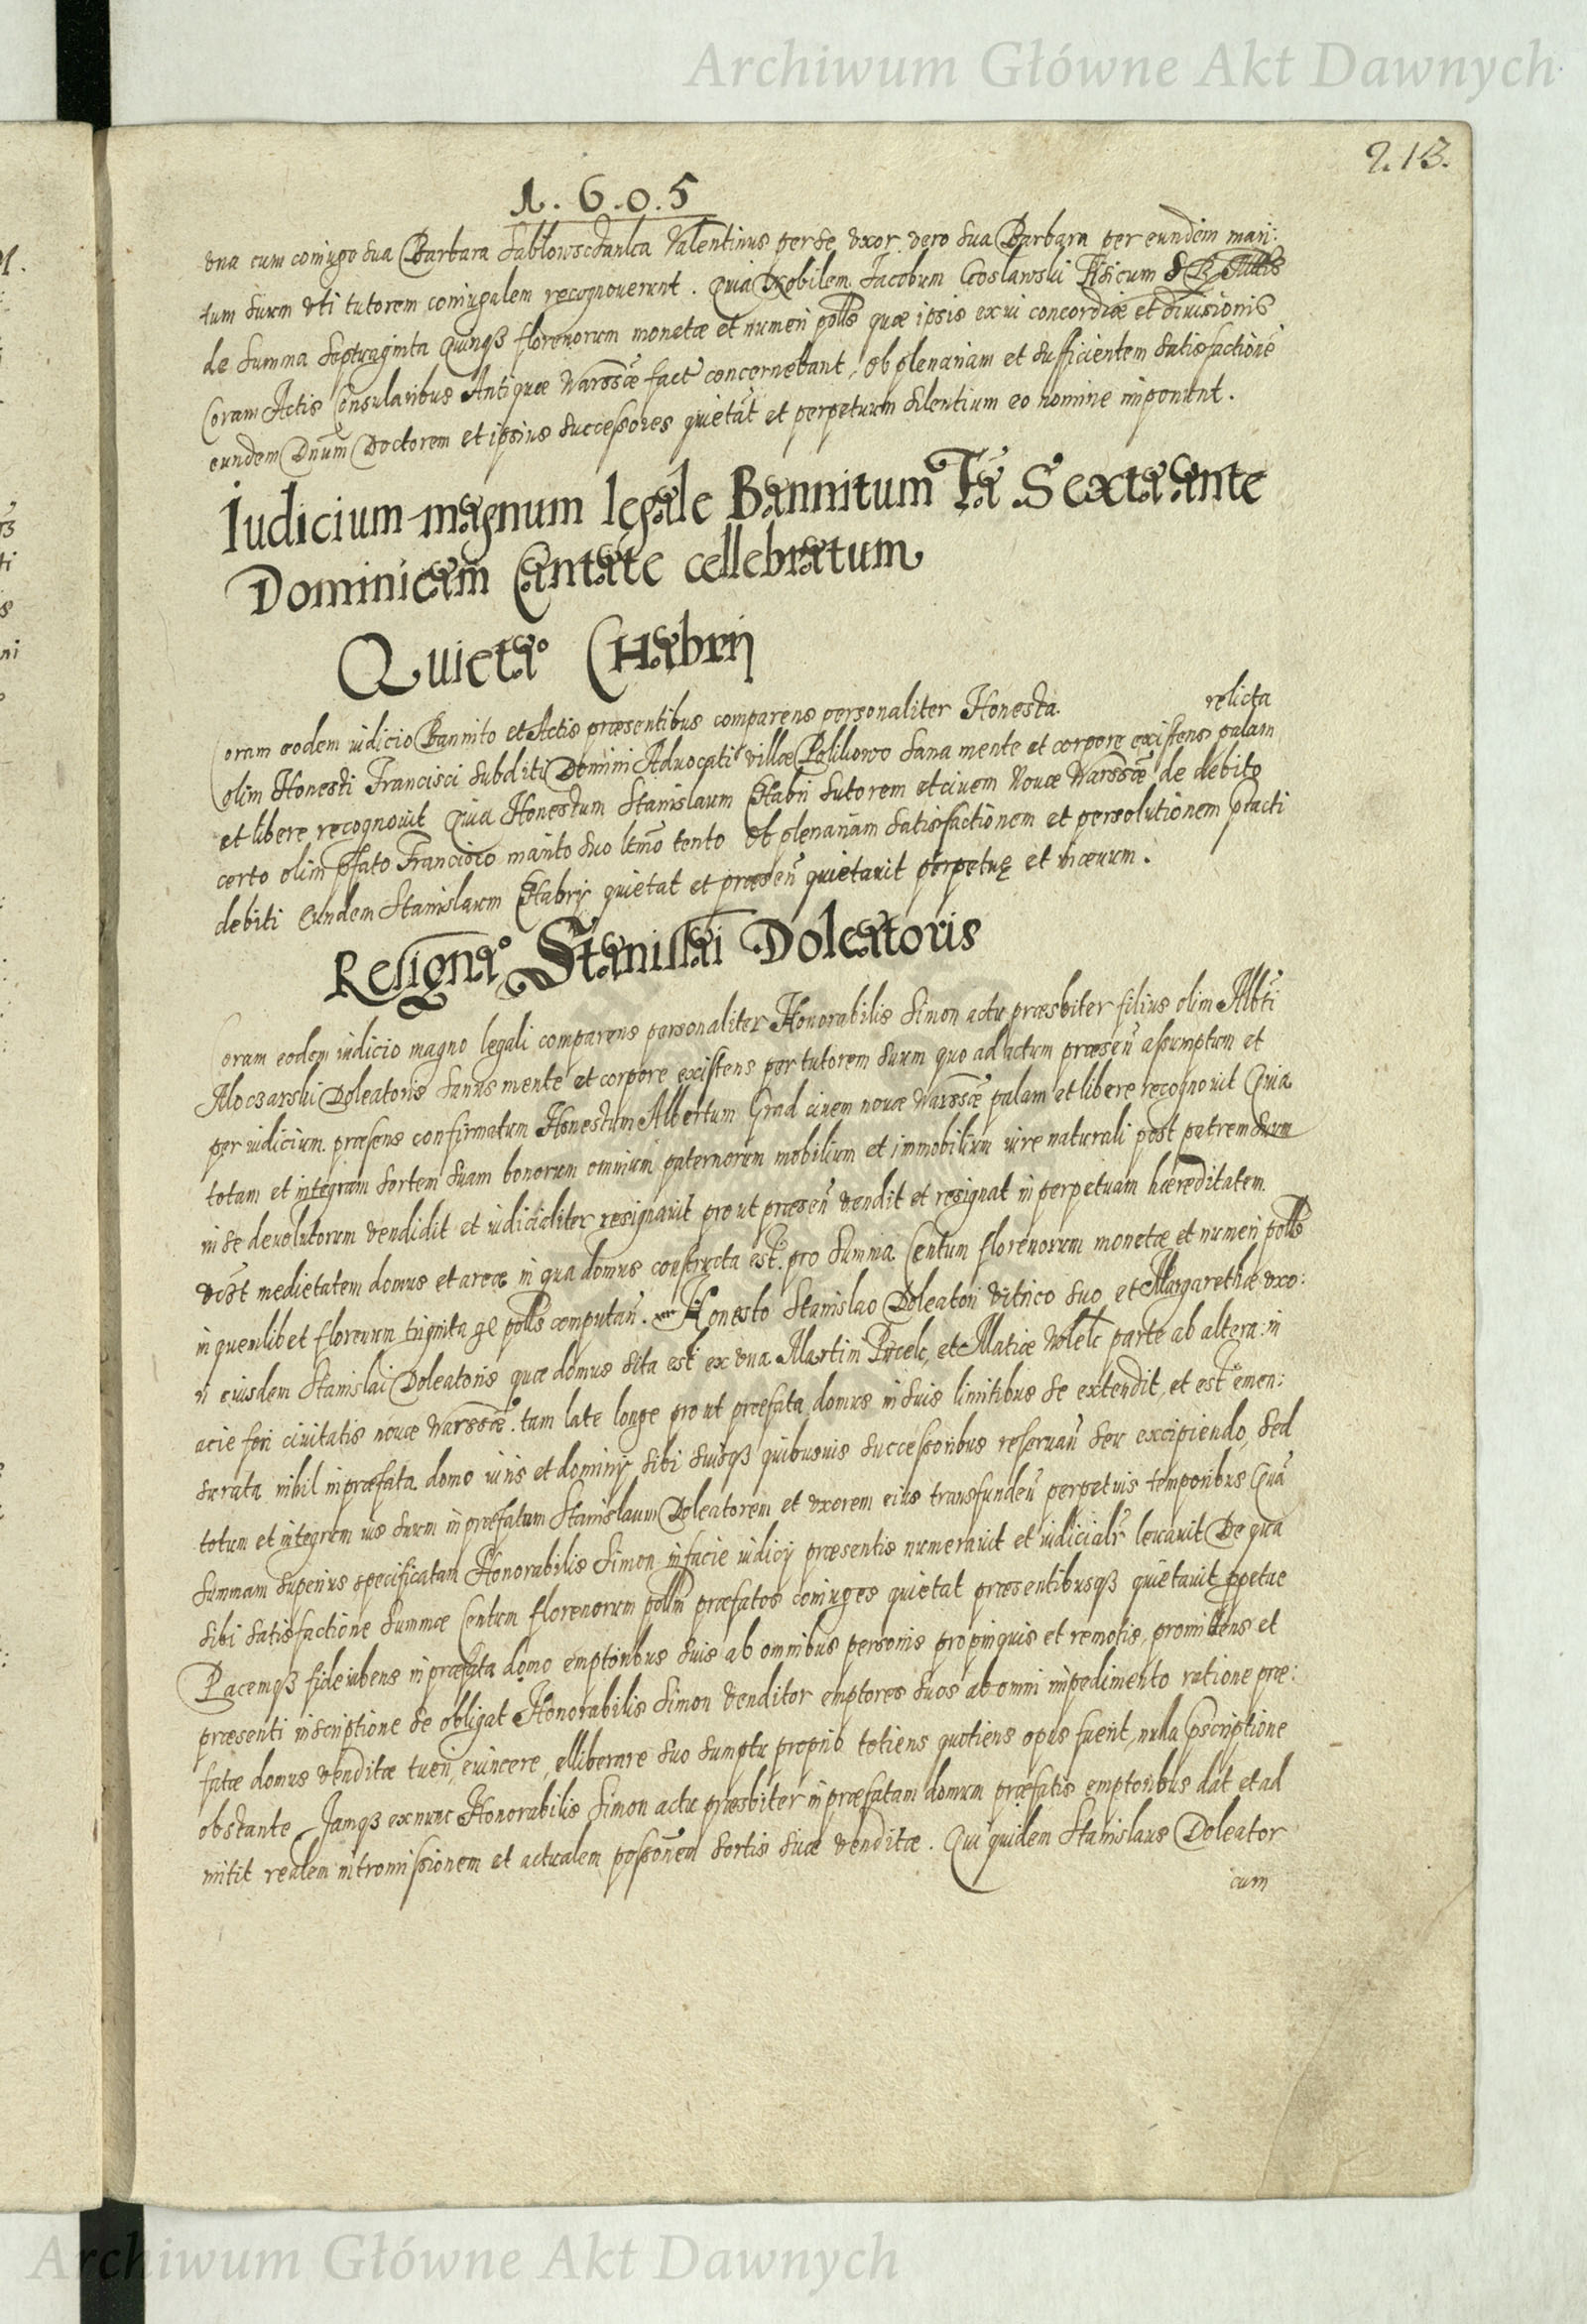 Archiwum Główne Akt Dawnych
213.
1.6.0.5
vna cum coniuge sua Barbara Valentinus per se vxor vero sua Barbara per eundem mari:
tum suum vti tutorem coniugalem recognouerunt. Quia Nobilem Jacobum Goslawski Fisicum S R Mttis
de summa septuaginta Quinqȝ florenorum monetæ et numeri pollis quæ ipsis ex vi concordiæ et diuisionis
Coram Actis Consularibus Antiquæ Warssæ fact concernebant, ob plenariam et sufficientem satisfactione
eundem Dnum Doctorem et ipsius successores quietat et perpetuum silentium eo nomine imponunt.
Iudicium magnum legale Bannitum Fa Sexta ante
Dominicam Cantate cellebratum
Quieta° Chabrij
Coram eodem iudicio Bannito et Actis præsentibus comparens personaliter Honesta relicta
olim Honesti Francisci subditi Domini Aduocati villæ Polikowo sana mente et corpore existens palam
et libere recognouit Quia Honestum Stanislaum Chabri sutorem et ciuem Nouæ Warssæ de debito
certo olim pfato Francisco marito suo ltmo tento ob plenariam satisfactionem et persolutionem ptacti
debiti Eundem Stanislaum Chabrij quietat et præsen quietauit perpetuę et in æuum.
Resigna° Stanislai Doleatoris
Coram eodem iudicio magno legali comparens personaliter Honorabilis Simon actu præsbiter filius olim Alberti
Doleatoris sanus mente et corpore existens per tutorem suum quo ad actum præsen assumptum et
per iudicium præsens confirmatum Honestum Albertum Grad ciuem nouæ Warssæ palam et libere recognouit Quia
totam et integram sortem suam bonorum omnium paternorum mobilium et immobilium iure naturali post patrem suum
in se deuolutorum vendidit et iudicialiter resignauit prout præsen vendit et resignat in perpetuam hæreditatem
medietatem domus et areæ in qua domus constructa est. pro summa Centum florenorum monetæ et numeri pollis
in quemlibet florenum triginta pollis computan. Honesto Stanislao Doleatori vitrico suo et Margarethæ vxo:
ri eiusdem Stanislai Doleatoris quæ domus sita est ex vna Martini et Matiæ parte ab altera: in
acie fori ciuitatis nouæ Warssæ. tam late longe prout præfata domus in suis limitibus se extendit, et est emen:
surata nihil in præfata domo iuris et dominij sibi suisqȝ quibusuis successoribus reseruan seu excipiendo, sed
totum et integrum ius suum in præfatum Stanislaum Doleatorem et vxorem eius transfunden perpetuis temporibus Qua
summam superius specificatam Honorabilis Simon in facie iudicij præsentis numerauit et iudicialr leuauit De qua
sibi satisfactione summæ Centum florenorum pollm præfatos coniuges quietat præsentibusqȝ quietauit ppetue
Pacemqȝ fideiubens in præfata domo emptoribus suis ab omnibus personis propinquis et remotis, promittens et
præsenti inscriptione se obligat Honorabilis Simon venditor emptores suos ab omni impedimento ratione præ:
fatæ domus venditæ tueri, euincere, elliberare suo sumptu proprio totiens quotiens opus fuerit, nulla pscriptione
obstante Jamqȝ ex nunc Honorabilis Simon actu præsbiter in præfatam domum præfatis emptoribus dat et ad
mitit realem intromissionem et actualem possonem sortis suæ venditæ. Qui quidem Stanislaus Doleator
cum
Archiwum Główne Akt Dawnych